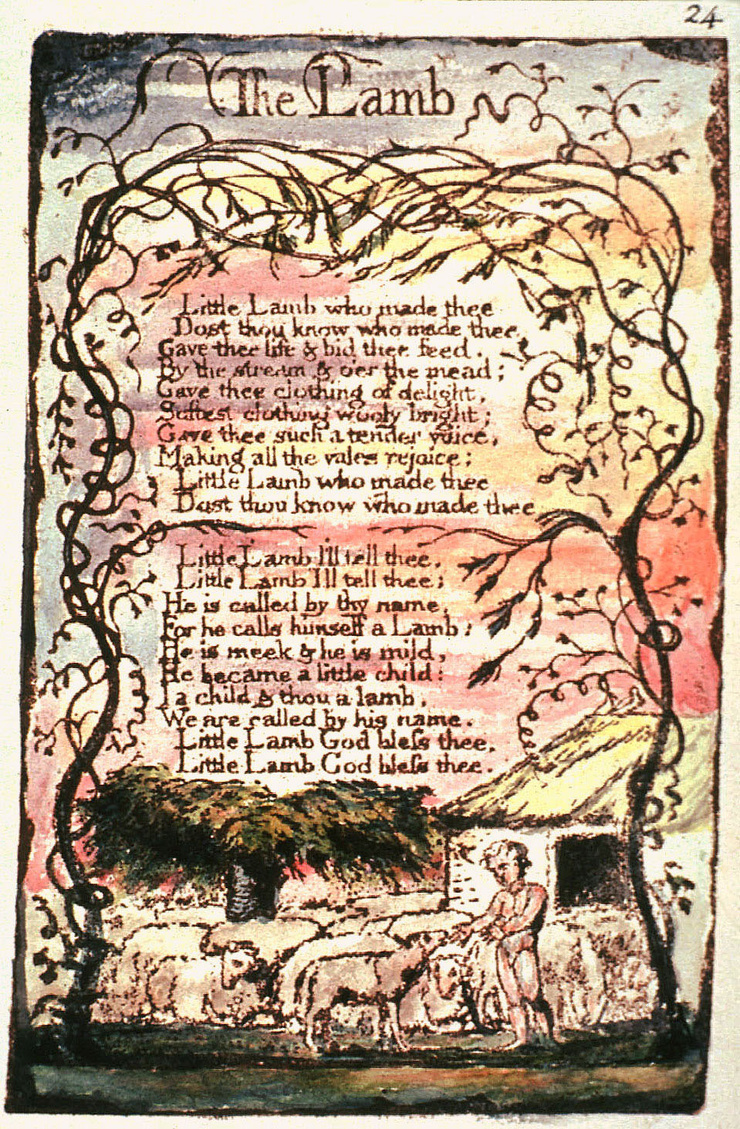 24
The Lamb
Little Lamb who made thee
Dost thou know who made thee
Gave thee life & bid thee feed.
By the stream & o'er the mead;
Gave thee clothing of delight,
Softest clothing wooly bright;
Gave thee such a tender voice,
Making all the vales rejoice;
Little Lamb who made thee
Dost thou know who made thee
Little Lamb I'll tell thee,
Little Lamb I'll tell thee;
He is called by thy name,
For he calls himself a Lamb:
He is meek & he is mild,
He became a little child:
I a child & thou a lamb,
We are called by his name.
Little Lamb God bleſs thee,
Little Lamb God bleſs thee.